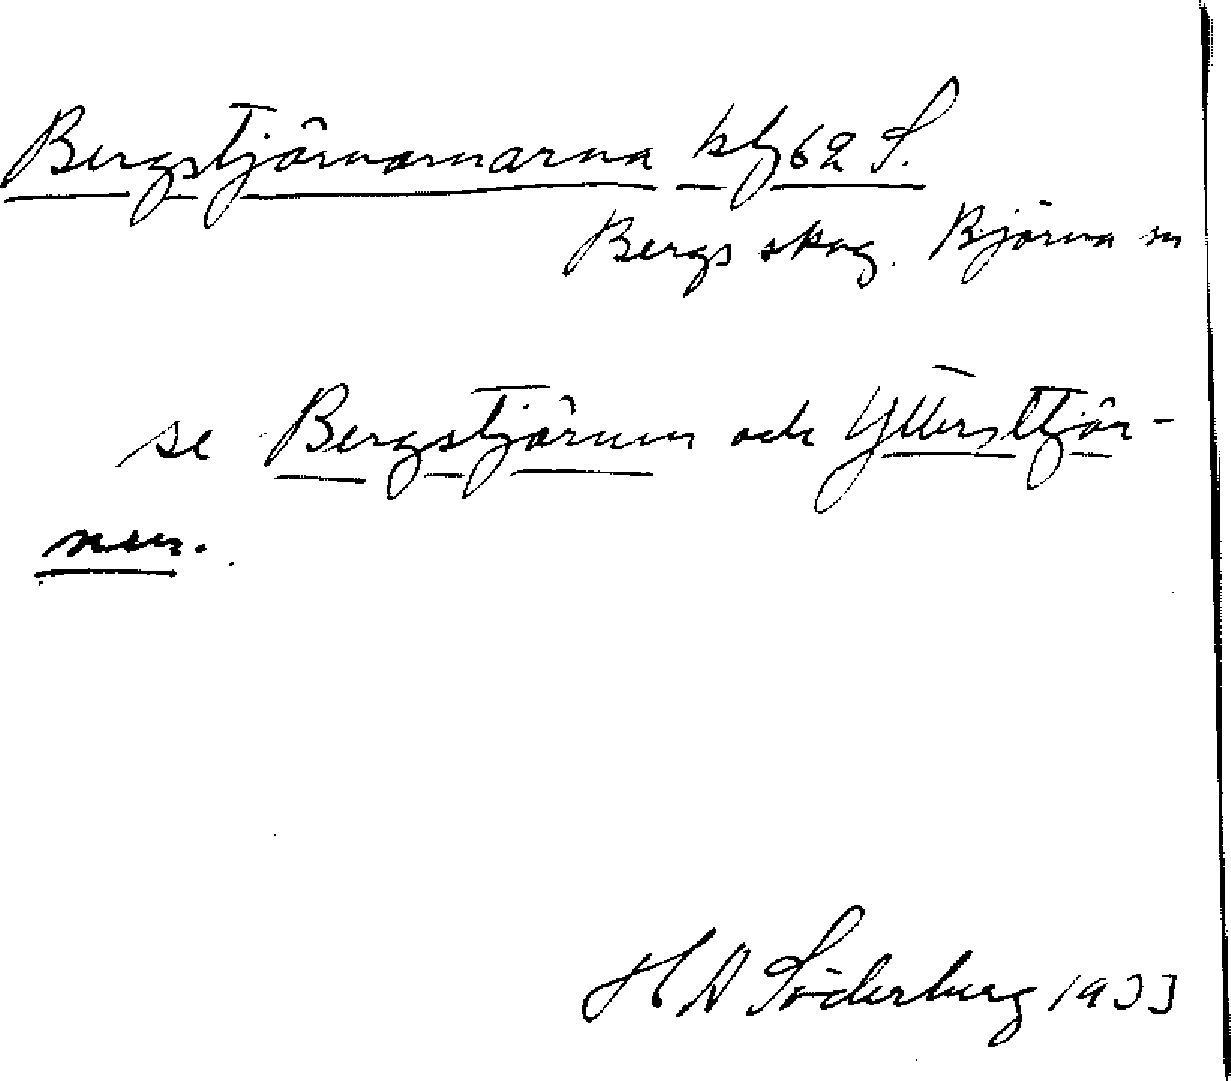 Bergstjärnarnarna kbf 62 S.
Bergs skog. Björna sn
se Bergstjärnen och Yttersttjär-
nen.
H D Söderberg 1933